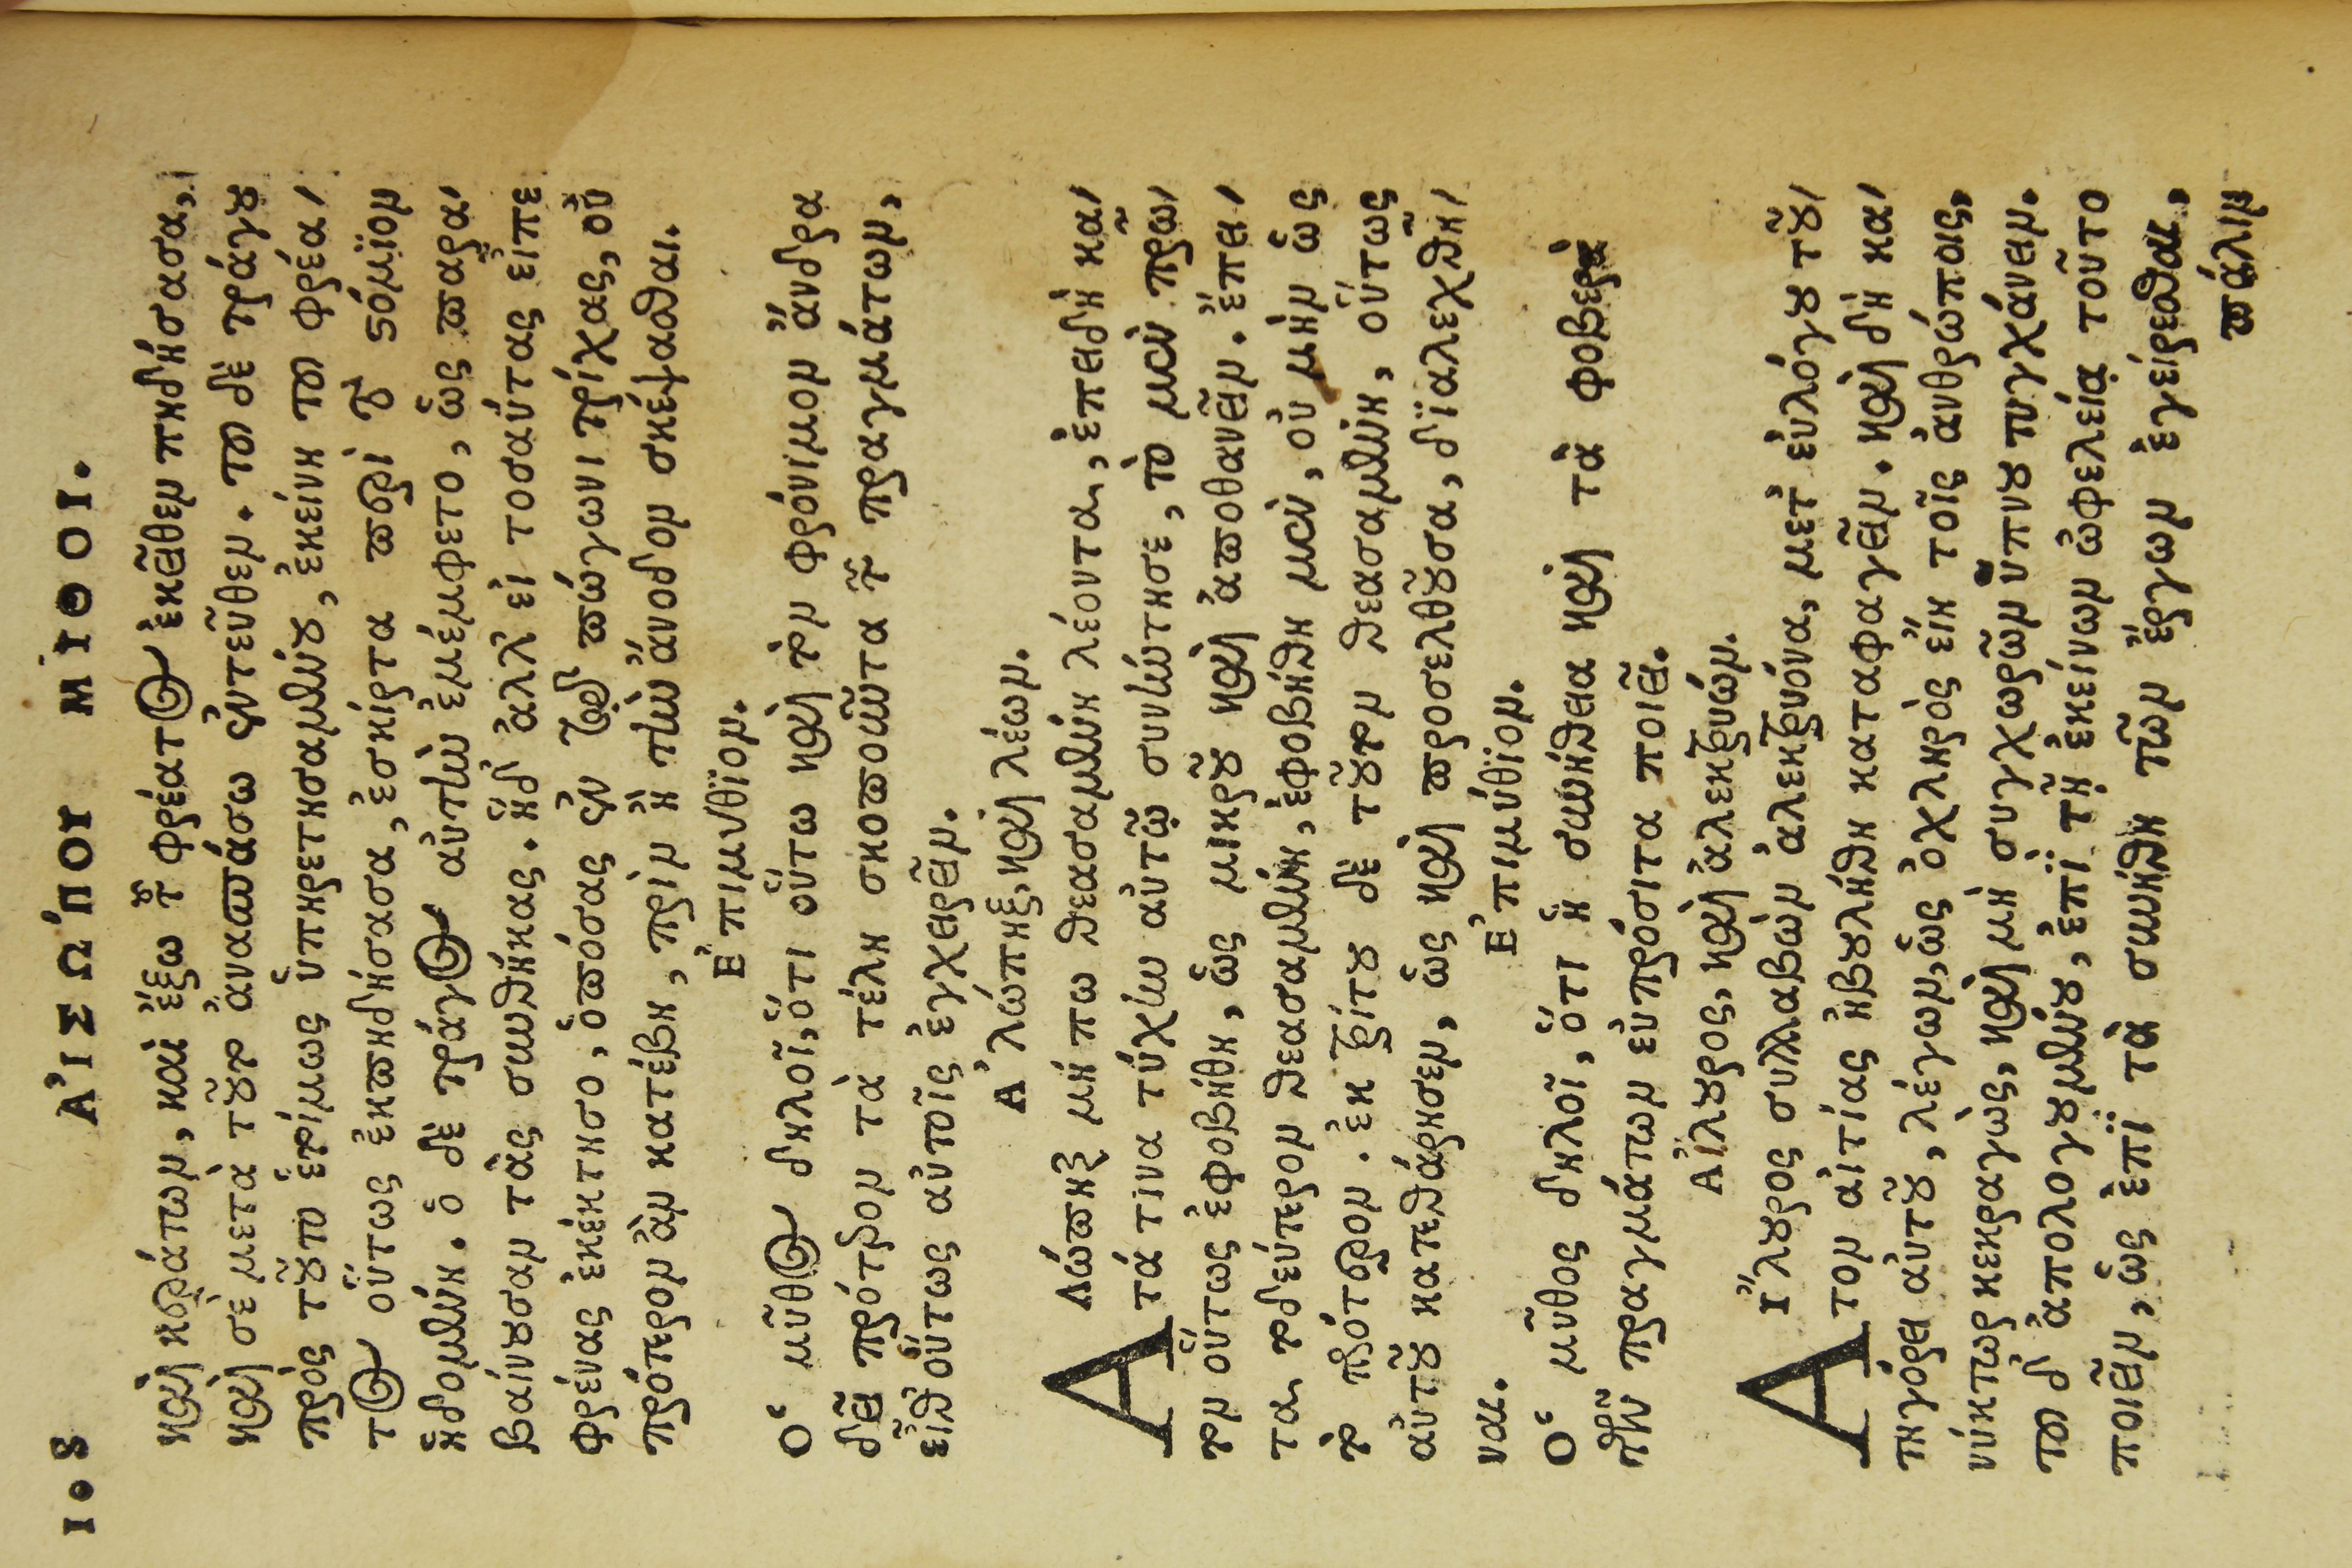 108 ΑἸΣΩΠΟΥ ΜΥΘΟΙ.
καὶ κεράτων, καὶ ἔξω τοῦ φρέατος ἐκεῖθεν πηδήσασα,
καὶ σὲ μετὰ τοῦτο ἀνασπάσω ἐντεῦθεν. τοῦ δὲ τράγου
πρὸς τοῦτο ἑτοίμως ὑπηρετησαμένου, ἐκείνη τοῦ φρέα/
τος οὕτως ἐκπηδήσασα, ἐσκίρτα περὶ τὸ στόμιον
ἡδομένη. ὁ δὲ τράγος αὐτὴν ἐμέμφετο, ὡς παρα/
βαίνουσαν τὰς συνθήκας. ἡ δ' ἀλλ' εἰ τοσαύτας εἶπε
φρένας ἐκέκτησο, ὁπόσας ἐν τῷ πώγωνι τρίχας, οὐ
πρότερον ἂν κατέβη, πρὶν ἢ τὴν ἄνοδον σκέψασθαι.
Ἐπιμύθιον.
Ὁ μῦθος δηλοῖ, ὅτι οὕτω καὶ τὸν φρόνιμον ἄνδρα
δεῖ πρότερον τὰ τέλη σκοποῦντα τῶν πραγμάτων,
εἶθ' οὕτως αὐτοῖς ἐγχειρεῖν.
Ἀλώπηξ, καὶ λέων.
Ἀλώπηξ μή πω θεασαμένη λέοντα, ἐπειδὴ κα/
τά τινα τύχην αὐτῷ συνήντησε, τὸ μὲν πρῶ/
τον οὕτως ἐφοβήθη, ὡς μικροῦ καὶ ἀποθανεῖν. ἔπει/
τα τὸ δεύτερον θεασαμένη, ἐφοβήθη μὲν, οὐ μὴν ὡς
τὸ πρότερον. ἐκ τρίτου δὲ τοῦτον θεασαμένη, οὕτως
αὐτοῦ κατεθάρησεν, ὡς καὶ προσελθοῦσα, διαλεχθῆ/
ναι.
Ἐπιμύθιον.
Ὁ μῦθος δηλοῖ, ὅτι ἡ συνήθεια καὶ τὰ φοβερὰ
τῶν πραγμάτων εὐπρόσιτα ποιεῖ.
Αἴλουρος, καὶ ἀλεκτρυών.
Αἴλουρος συλλαβὼν ἀλεκτρυόνα, μετ' εὐλόγου τοῦ/
τον αἰτίας ἠβουλήθη καταφαγεῖν. καὶ δὴ κα/
τηγόρει αὐτοῦ, λέγων, ὡς ὀχληρὸς εἴη τοῖς ἀνθρώποις,
νύκτωρ κεκραγὼς, καὶ μὴ συγχωρῶν ὕπνου τυγχάνειν.
τοῦ δ' ἀπολογουμένου, ἐπὶ τῇ ἐκείνων ὠφελείᾳ τοῦτο
ποιεῖν, ὡς ἐπὶ τὰ συνήθη τῶν ἔργων ἐγείρεσθαι,
πάλιν